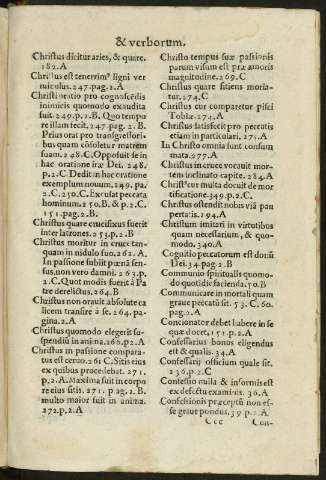 & verborum.
Christus dicitur aries, & quare.
182.A
Christus est tenerrimꝰ ligni ver
miculus. 247.pag.2.A
Christi oratio pro cognoscẽdis
inimicis quomodo exaudita
fuit. 249.p.2.B. Quo tempo
re illam fecit. 247.pag.2.B.
Prius orat pro transgressori
bus quam cõsoletur matrem
suam. 248.C. Opposuit se in
hac oratione iræ Dei. 248.
p.2.C Dedit in hac oratione
exemplum nouum. 249. pa.
2.C. 250.C. Excusat peccata
hominum. 250.B. & p.2.C.
151.pag.2.B.
Christus quare crucifixus fuerit
inter latrones. 253.p.2.B
Christus moritur in cruce tan-
quam in nidulo suo. 262.A.
In passione subiit pœnã sen-
sus, non vero damni. 263.p.
2.C. Quot modis fuerit à Pa
tre derelictus. 264.B
Christus non orauit absolute ca
licem transire à se. 264.pa-
gina.2.A
Christus quomodo elegerit su-
spendiũ in anima. 260.p.2.A
Christus in passione compara-
tus est ceruo. 261.C. Sitis eius
ex quibus procedebat. 271.
p.2.A. Maxima fuit in corpo
re eius sitis. 271. pag.2.B.
multo maior fuit in anima.
272.p.2.A
Christo tempus suæ passionis
parum visum est præ amoris
magnitudine. 269.C
Christus quare sitiens moria-
tur. 274.C
Christus cur comparetur pisci
Tobiæ. 274.A
Christus satisfecit pro peccatis
etiam in particulari. 271.A
In Christo omnia sunt consum
mata. 277.A
Christus in cruce vocauit mor-
tem inclinato capite. 284.A
Christꝰ cur multa docuit de mor
tificatione. 349.p.2.C.
Christus ostendit nobis viã pau
pertatis. 194.A
Christum imitari in virtutibus
quam necessarium, & quo-
modo. 340.A
Cognitio peccatorum est donũ
Dei. 34.pag.2.B
Communio spiritualis quomo-
do quotidie facienda. 50.B
Communicare in mortali quam
graue peccatũ sit. 53.C. 60.
pag.2.A
Concionator debet habere in se
quæ docet. 151.p.2.A
Confessarius bonus eligendus
est & qualis. 34.A
Confessarij officium quale sit.
236.p.2.C
Confessio nulla & informis est
ex defectu examinis. 36.A
Confessionis præceptũ non es-
se graue pondus. 39.p.2.A
Ccc Con-